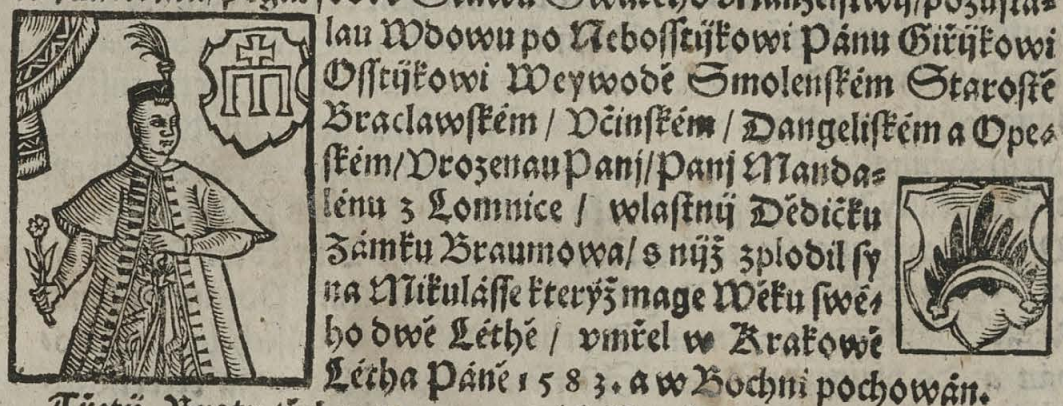 Swateho Manželstwij/pozůsta-
lau Wdowu po Nebossstijkowi Pánu Giřijkowi
Osstijkowi Weywodě Smolenſkém Staroſtě
Braclawſkém / Včinſkém / Dangeliſkém a Ope-
ſkém/Vrozenau Panj/Panj Manda-
lénu z Lomnice / wlaſtnij Dědičku
Zámku Braumowa/ s nijž zplodil ſy
na Mikuláſſe kterýž mage Wěku ſwé-
ho dwě Léthě / vmřel w Krakowě
Létha Páně 1583. a w Bochni pochowán.